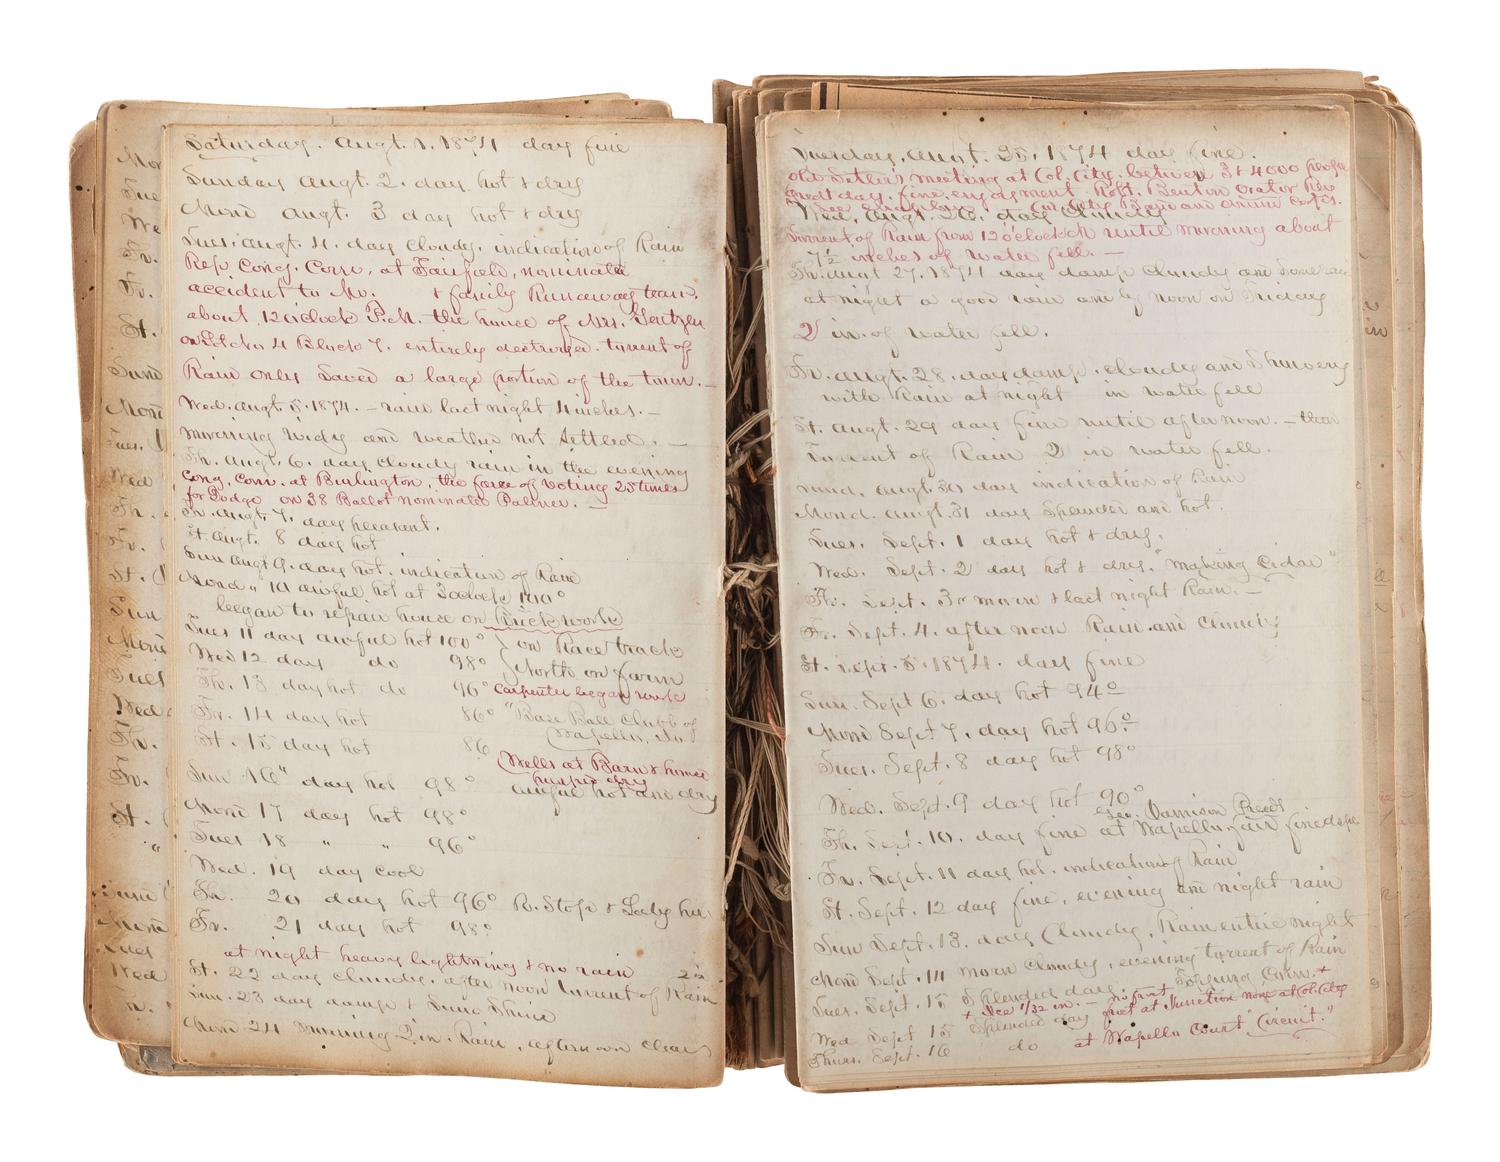 Saturday. Augt. 1. 1874 day fine
Sunday Augt. 2. day hot & dry
Mond Augt. 3 day hot & dry
Tues. Augt. 4. day cloudy, indication of Rain
Rep. Cong. Conv. at Fairfield, nominate
accident to Mr. & family Runaway team.
about 12 o'clock P.M. the house of Mrs.
on Lot No 4 Block 7. entirely destroyed. torrent of
Rain only saved a large portion of the town. —
Wed. Augt 5. 1874. — rain last night 4 inches. —
morning windy and weather not settled. —
Th. Augt. 6. day cloudy rain in the evening
Cong. Conv. at Burlington, the farce of voting 25 times
for Dodge on 38 Ballot nominated Palmer. —
Fr. Augt. 7. day pleasant.
St. Augt. 8 day hot
Sun Augt 9. day hot. indication of Rain
Mond " 10 awful hot at 3 oclock 100°
began to repair house on Brick work
Tues 11 day awful hot 100° on Race track
Wed 12 day do 98° North on farm
Th. 13 day hot do 96° carpenter began work
Fr. 14 day hot 86° "Base Ball Clubb of
Wapello, Io"
St. 15 day hot 86
Wells at Barn & home
dry
Sun 16" day hot 98° awful hot and dry
Mond 17 day hot 98°
Tues 18 " " 96°
Wed. 19 day cool
Th. 20 day hot 96° R. Stop & Lady
Fr. 21 day hot 98°
at night heavy lightning & no rain
St. 22 day cloudy, after noon torrent of Rain
Sun. 23 day damp & Suno Shine
Mond 24 morning 2 in. Rain, afternoon clear
Tuesday, Augt. 25, 1874 day fine.
old Settler's meeting at Col. City, between 3 & 4000 people
great day, fine enjoyment. Robt. Benton Orator
Col. City Band and drum corps.
Wed. Augt. 26. day Cloudy
Torrent of Rain from 12 o'clock until morning about
7½ inches of water fell. —
Th. Augt 27. 1874 day damp Cloudy and
at night a good rain and by noon on Friday
2 in. of water fell.
Fr. Augt. 28. day damp. cloudy and Showery
with Rain at night in water fell
St. Augt. 29 day fine until afternoon. —
Torrent of Rain 2 in water fell.
Augt. 30 day indication of Rain
Mond. Augt. 31 day Splendid and hot.
Tues. Sept. 1 day hot & dry.
Wed. Sept. 2 day hot & dry. "making Cidar"
Th. Sept. 3 morn & last night Rain. —
Fr. Sept. 4. after noon Rain and Cloudy
St. Sept. 5. 1874. day fine
Sun. Sept 6. day hot 94°
Mond Sept 7. day hot 96°
Tues. Sept. 8 day hot 98°
Wed. Sept. 9 day hot 90°
Th. Sept. 10. day fine at Wapello fair fine
Fr. Sept. 11 day hot. indication of Rain
St. Sept. 12 day fine, evening and night rain
Sun Sept. 13. day Cloudy, Rain entire night
Mond Sept. 14 morn cloudy, evening torrent of Rain
Tues. Sept. 15 Splendid day.
+ Ice 1/32 in. — no frost
frost at Junction none at Col. City
Wed Sept 15 Splendid day
Thurs. Sept. 16 do at Wapello Court "Circuit."